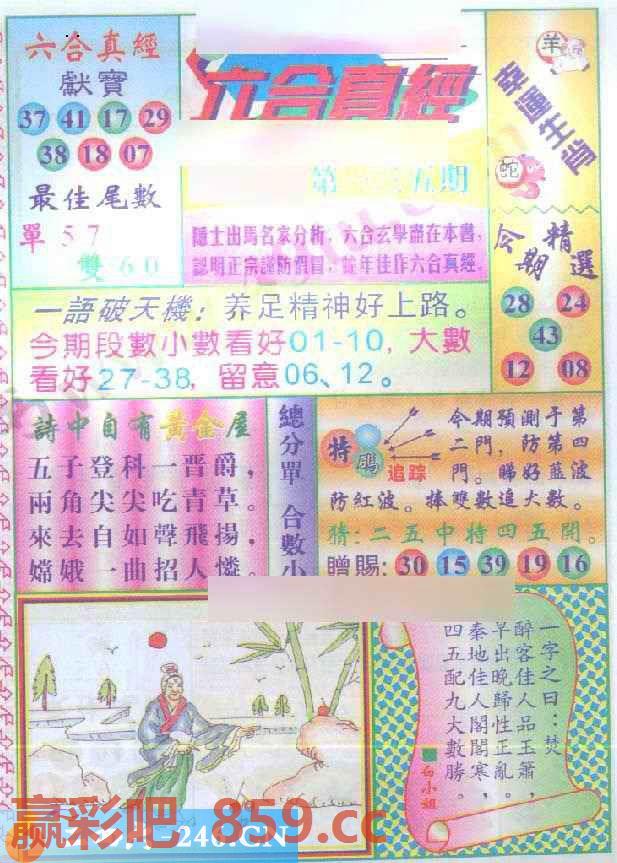 六合真經
獻寶
37 41 17 29
38 18 07
最佳尾數
單 57
雙 60
六合真經
第 五期
隱士出馬名家分析，六合玄學盡在本書，
認明正宗謹防假冒，蛇年佳作六合真經。
羊
幸運生肖
蛇
今期精選
28 24
43
12 08
一語破天機：养足精神好上路。
今期段數小數看好01-10，大數
看好27-38，留意06、12。
詩中自有黃金屋
五子登科一晋爵，
兩角尖尖吃青草。
來去自如聲飛揚，
嫦娥一曲招人憐。
總分單 合數小
特碼
追踪
今期預測于第
二門，防第四
門。睇好藍波
防紅波。捧雙數追大數。
猜：二五中特四五開。
贈賜：30 15 39 19 16
一字之曰：焚
醉客佳人品玉簫，
早出晚歸性正亂。
秦地佳人閣閣寒，
四五配九大數勝。
白小姐
赢彩吧 859.cc
-246.CN